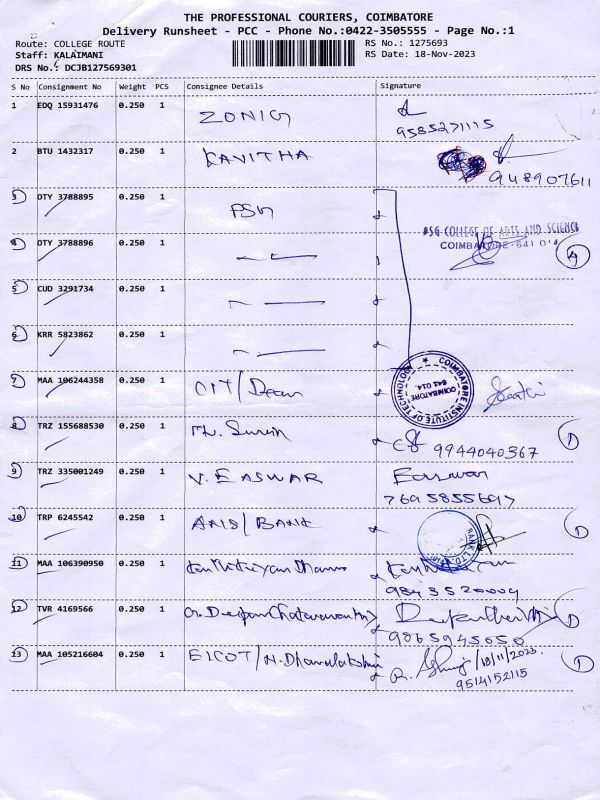 THE PROFESSIONAL COURIERS, COIMBATORE
Delivery Runsheet - PCC - Phone No.:0422-3505555 - Page No.:1
Route: COLLEGE ROUTE RS No.: 1275693
Staff: KALAIMANI RS Date: 18-Nov-2023
DRS No.: DCJB127569301
S No Consignment No Weight PCS Consignee Details Signature
1 EDQ 15931476 0.250 1 ZONIG
9585271115
2 BTU 1432317 0.250 1 KAVITHA
948907611
3 OTY 3788895 0.250 1 PSG
PSG COLLEGE OF ARTS AND SCIENCE
4 OTY 3788896 0.250 1 COIMBATORE-641 014
5 CUD 3291734 0.250 1
6 KRR 5823862 0.250 1
7 MAA 106244358 0.250 1 CIT/Dean
COIMBATORE INSTITUTE OF TECHNOLOGY
COIMBATORE
641 014
8 TRZ 155688530 0.250 1
9944040367
9 TRZ 335001249 0.250 1 V. EASWAR Easwar
7695855697
10 TRP 6245542 0.250 1 AXIS/BANK
BANK LTD.
11 MAA 106390950 0.250 1
12 TVR 4169566 0.250 1
9865945050
13 MAA 105216604 0.250 1 ELCOT/N.Dhanalakshmi
18/11/2023.
9514152115